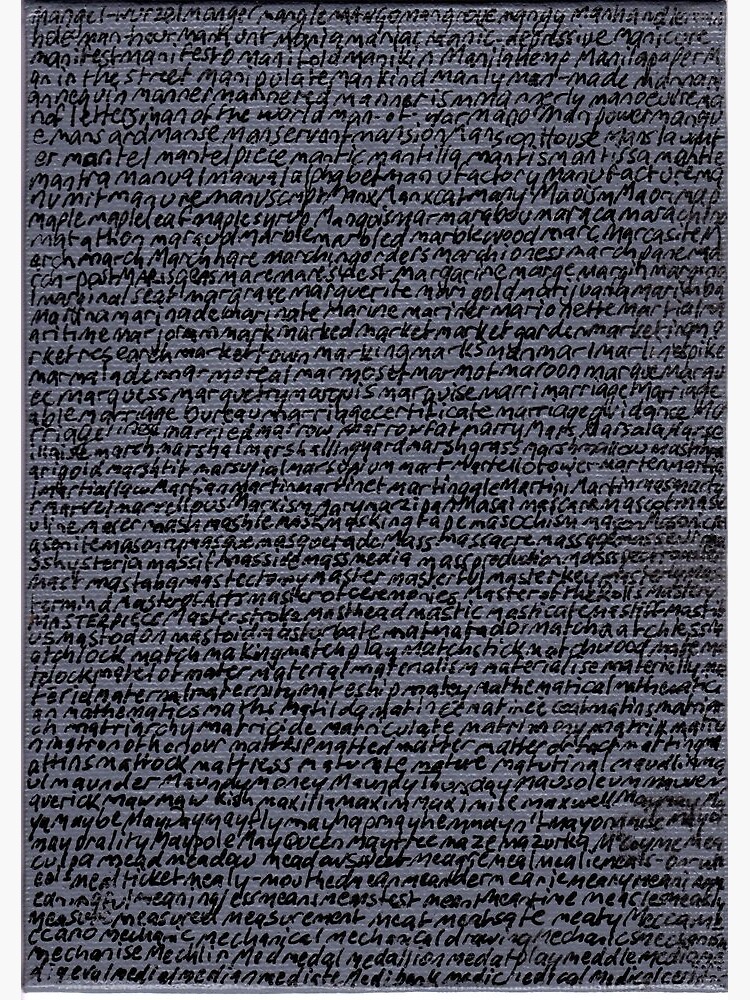 mangel-wurzel manger mangle mango mangrove mangy manhandle man
hole man-hour mankunt mania maniac manic-depressive manicure
manifest manifesto manifold manikin Manilahemp Manilapaper m
an in the street manipulate mankind manly man-made mannam
annequin manner mannered mannerism mannerly manoeuvre ma
nof letters man of the world man-of-war manor manpower manqu
e mansard manse Manservant mansion Mansion House Manslaught
er mantel mantelpiece mantic mantilla mantis mantissa mantle
mantra manual manual alphabet manufactory manufacture ma
numit manure manuscript Manx Manxcat many Maoism Maori map
maple mapleleaf maplesyrup Maquis mar marabou maraca marachino
marathon maraud Marble marbled marblewood marc Marcasite M
arch march March hare marching orders marchioness marchpane ma
rcon-post Mardi Gras mare maresnest margarine marge margin margina
l marginal seat margrave marguerite marigold marijuana marimba
marina marinade marinate Marine mariner marionette martial m
aritime marjoram mark marked market market garden marketing ma
rket research market town marking marksman marl marlinespike
marmalade marmoreal marmoset marmot maroon marque marqu
ee marquess marquetry marquis marquise marri marriage Marriage
able marriage bureau marriage certificate marriage guidance Ma
rriage lines married marrow marrowfat marry Mars Marsala Marse
illaise marsh marshal marshalling yard marshgrass marshmallow marshm
arigold marsh tit marsupial marsupium mart Martello tower marten martia
l martial law Martian martin martinet martingale Martini Martinmas marty
r marvel marvellous Marxism Mary marzipan Masai mascara mascot masc
uline maser mash mashie mask masking tape masochism mason Masonic m
asonite masonry masque masquerade Mass massacre massage masseur ma
ss hysteria massif massive mass media mass production mass spectrome
mast mastaba mastectomy master masterful master key master
termind Master of Arts master of ceremonies Master of the Rolls mastery
MASTERPIECE Master stroke Masthead mastic masticate mastiff mastit
us mastodon mastoid masturbate mat matador match matchless m
atchlock match making match play Matchstick matchwood mate ma
telock matelot mater material materialism materialise materially ma
teriel maternal maternity mateship matey Mathematical mathematici
an mathematics maths Matilda matinee matinee coat matins matriar
ch matriarchy matricide matriculate matrimony matrix matro
n matron of honour matt rsp matted matter matter of fact matting m
attins mattock mattress maturate mature matutinal maudlin ma
ul maunder Maundy money Maundy Thursday mausoleum mauve m
averick maw mawkish maxilla maxim Maximise maxwell May may Ma
ya maybe May Day mayfly mayhap mayhem mayn't Mayonnaise mayor
mayorality Maypole May Queen maytree maze mazurka McCoy me Mea
culpa mead meadow meadowsweet meagre meal mealie meals-on-whe
els meal ticket mealy-mouthed mean meander meanie meany meani
eaningful meaningless means means test meant meantime measles measly
measure measured measurement meat meat safe meaty Mecca m
eccano mechanic mechanical mechanical drawing mechanics mechanism
mechanise Mechlin Med medal medallion medal play meddle media m
ediaeval medial median mediate Medibank medic medical Medical certifi